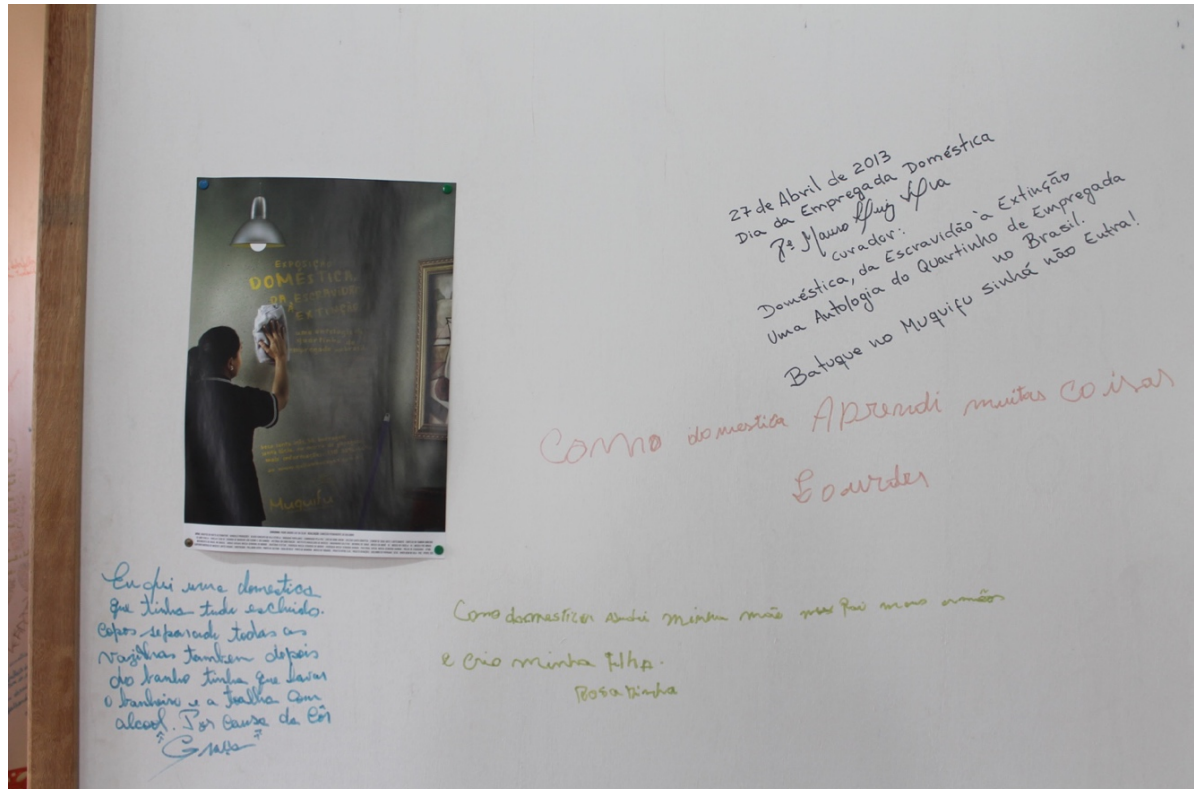 EXPOSIÇÃO
DOMÉSTICA,
DA ESCRAVIDÃO
À
EXTINÇÃO
Muquifu
27 de Abril de 2013
Dia da Empregada Doméstica
Pe Mauro Luiz Silva
curador:
Doméstica, da Escravidão à Extinção
Uma Antologia do Quartinho de Empregada
no Brasil.
Batuque no Muquifu sinhá não Entra!
Como domestica Aprendi muitas coisas
Lourdes
Eu fui uma domestica
que tinha tudo excluido.
copos separado todas as
vazilhas tambem depois
do banho tinha que lavar
o banheiro e a toalha com
alcool. Por causa da Côr
"Graça"
Como domestica minha mão meu Pai meus
e crio minha filha.
Rosarinha